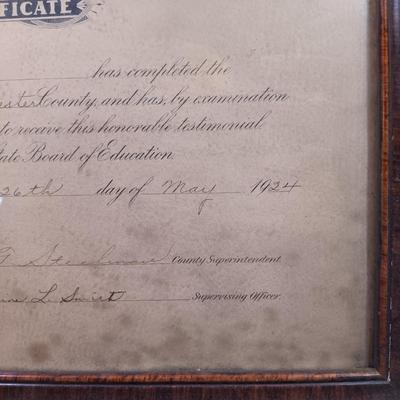 FICATE
has completed the
ster County, and has, by examination
to receive this honorable testimonial
ate Board of Education.
26th day of May 1924
County Superintendent.
L. Swift
Supervising Officer.